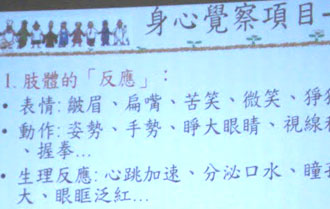 身心覺察項目
1. 肢體的「反應」:
• 表情: 皺眉、扁嘴、苦笑、微笑、猙
• 動作: 姿勢、手勢、睜大眼睛、視線
、握拳...
• 生理反應: 心跳加速、分泌口水、瞳
大、眼眶泛紅...